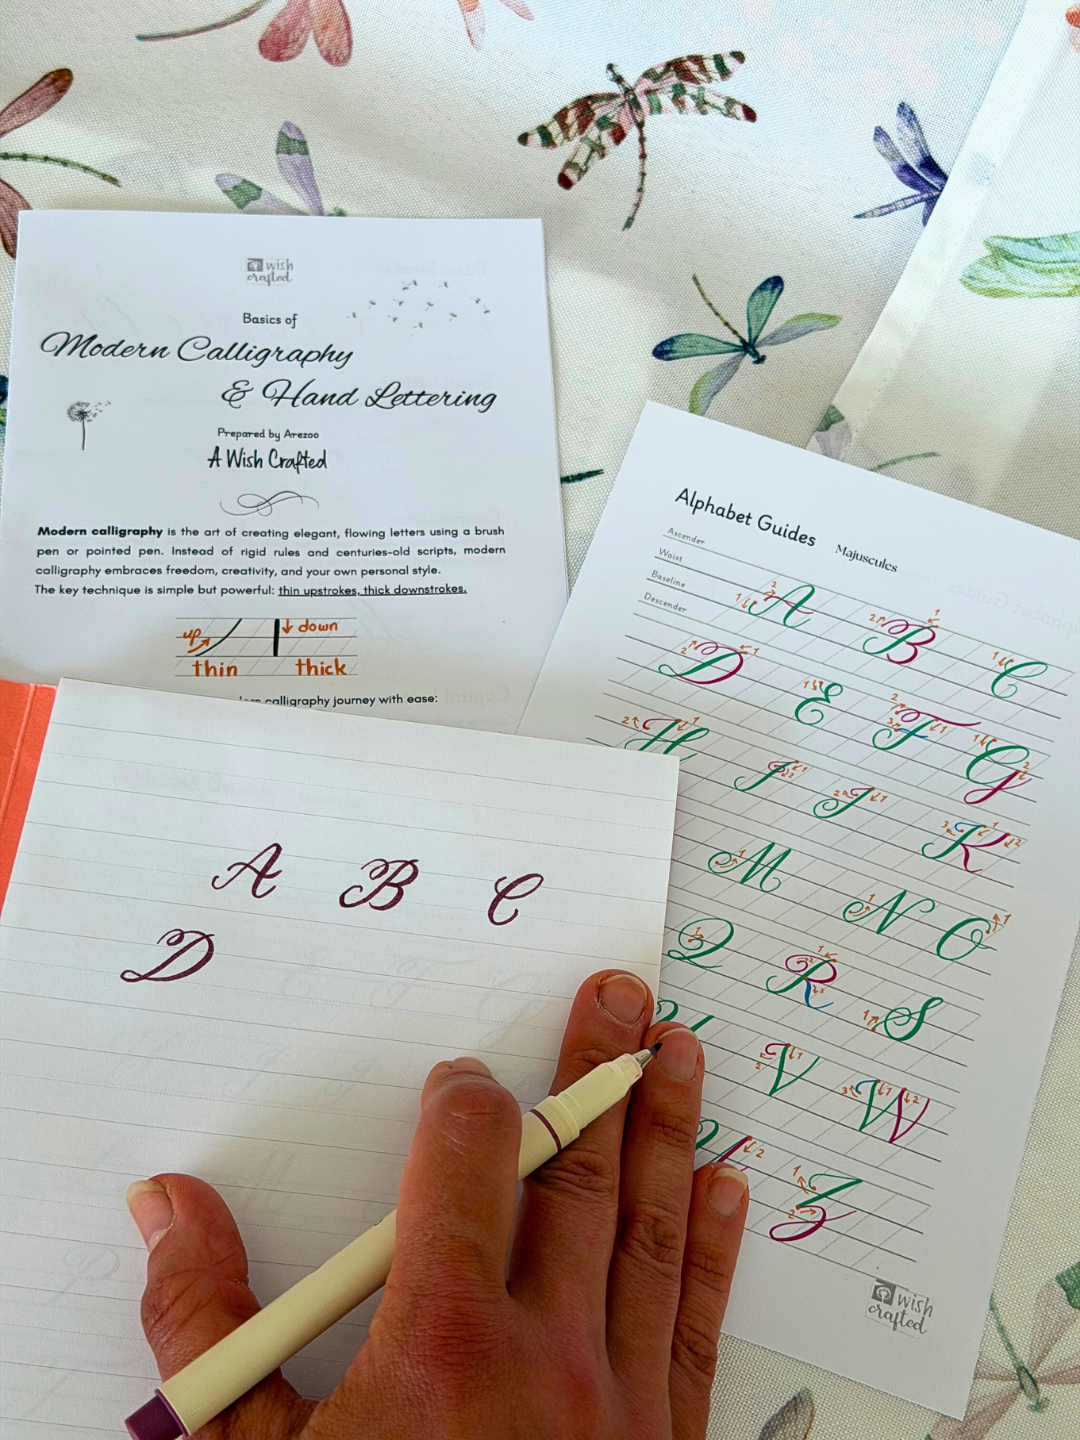 wish
crafted
Basics of
Modern Calligraphy
& Hand Lettering
Prepared by Arezoo
A Wish Crafted
Modern calligraphy is the art of creating elegant, flowing letters using a brush
pen or pointed pen. Instead of rigid rules and centuries-old scripts, modern
calligraphy embraces freedom, creativity, and your own personal style.
The key technique is simple but powerful: thin upstrokes, thick downstrokes.
up down
thin thick
calligraphy journey with ease:
Alphabet Guides Majuscules
Ascender
Waist
Baseline
Descender
A B C
D E F G
H I J K
M N O
Q R S
V W
Z
wish
crafted
A B C
D